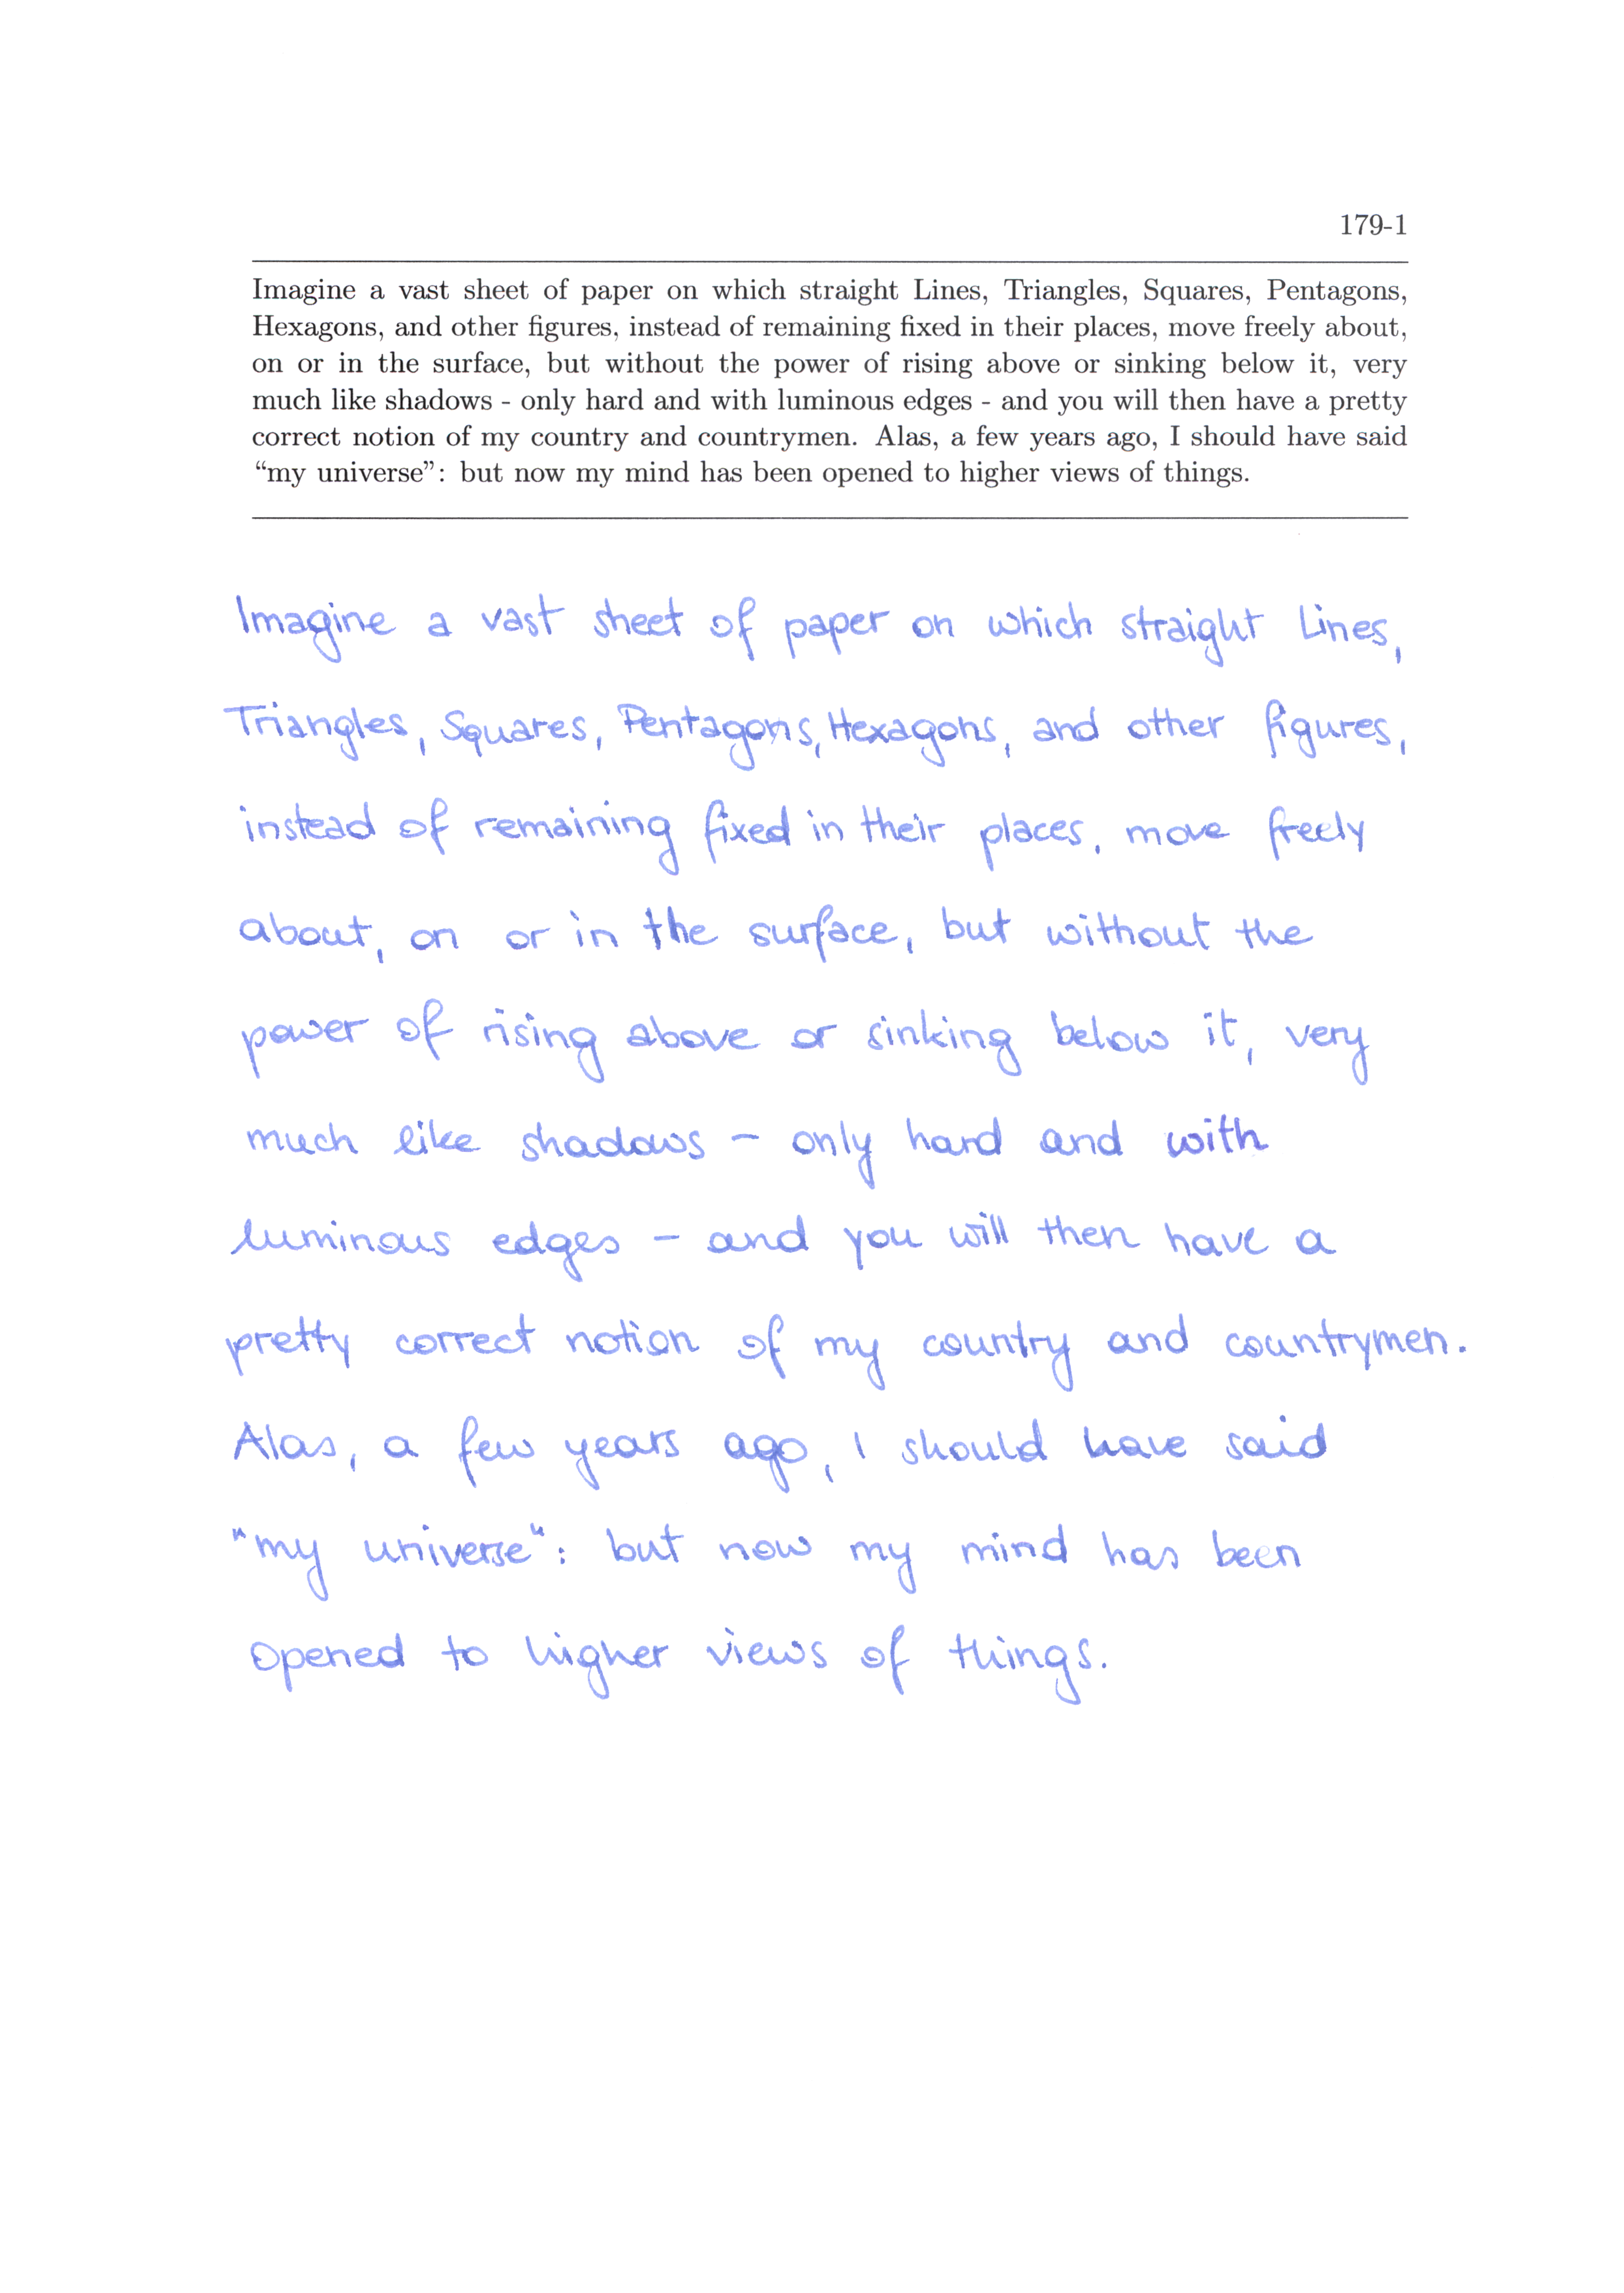 179-1
Imagine a vast sheet of paper on which straight Lines, Triangles, Squares, Pentagons,
Hexagons, and other figures, instead of remaining fixed in their places, move freely about,
on or in the surface, but without the power of rising above or sinking below it, very
much like shadows - only hard and with luminous edges - and you will then have a pretty
correct notion of my country and countrymen. Alas, a few years ago, I should have said
“my universe”: but now my mind has been opened to higher views of things.
Imagine a vast sheet of paper on which straight Lines,
Triangles, Squares, Pentagons, Hexagons, and other figures,
instead of remaining fixed in their places, move freely
about, on or in the surface, but without the
power of rising above or sinking below it, very
much like shadows - only hard and with
luminous edges - and you will then have a
pretty correct notion of my country and countrymen.
Alas, a few years ago, I should have said
"my universe": but now my mind has been
opened to higher views of things.